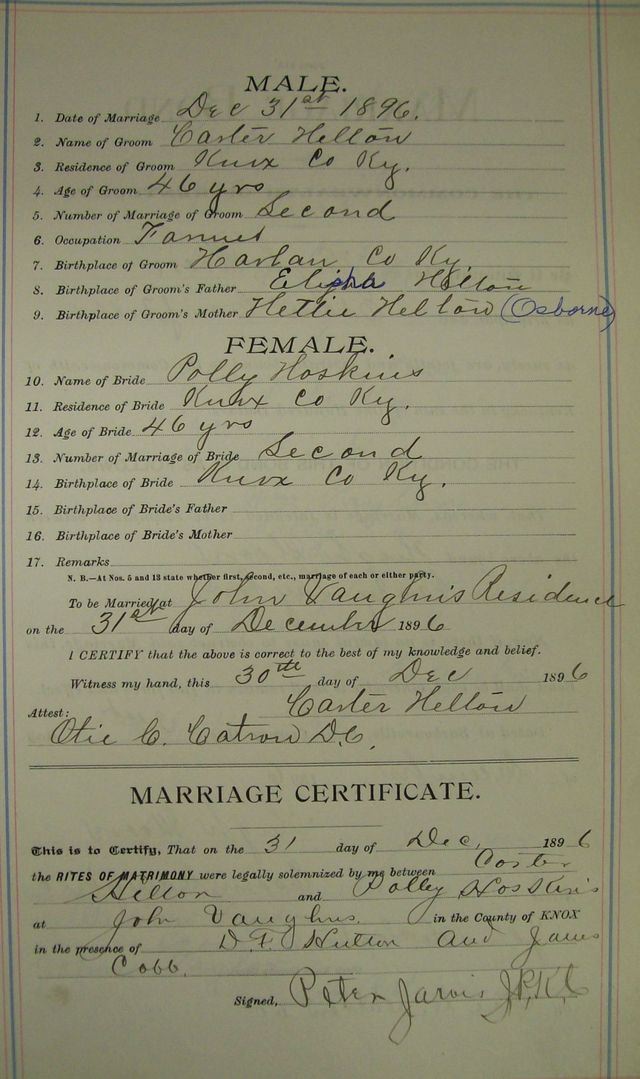 MALE.
1. Date of Marriage Dec 31st 1896.
2. Name of Groom Carter Helton
3. Residence of Groom Knox Co Ky.
4. Age of Groom 46 yrs
5. Number of Marriage of Groom Second
6. Occupation Farmer
7. Birthplace of Groom Harlan Co Ky
8. Birthplace of Groom's Father Elisha Helton
9. Birthplace of Groom's Mother Hettie Helton (Osborne)
FEMALE.
10. Name of Bride Polly Hoskins
11. Residence of Bride Knox Co Ky.
12. Age of Bride 46 yrs
13. Number of Marriage of Bride Second
14. Birthplace of Bride Knox Co Ky.
15. Birthplace of Bride's Father
16. Birthplace of Bride's Mother
17. Remarks
N. B.—At Nos. 5 and 13 state whether first, second, etc., marriage of each or either party.
To be Married at John Vaughns Residence
on the 31st day of December 1896
I CERTIFY that the above is correct to the best of my knowledge and belief.
Witness my hand, this 30th day of Dec 1896
Carter Helton
Attest:
Otie C. Catron D.C.
MARRIAGE CERTIFICATE.
This is to Certify, That on the 31 day of Dec. 1896
the RITES OF MATRIMONY were legally solemnized by me between Carter
Helton and Polly Hoskins
at John Vaughns. in the County of KNOX
in the presence of D.F. Hutton and James
Cobb.
Signed, Peter Jarvis J.P.K.C